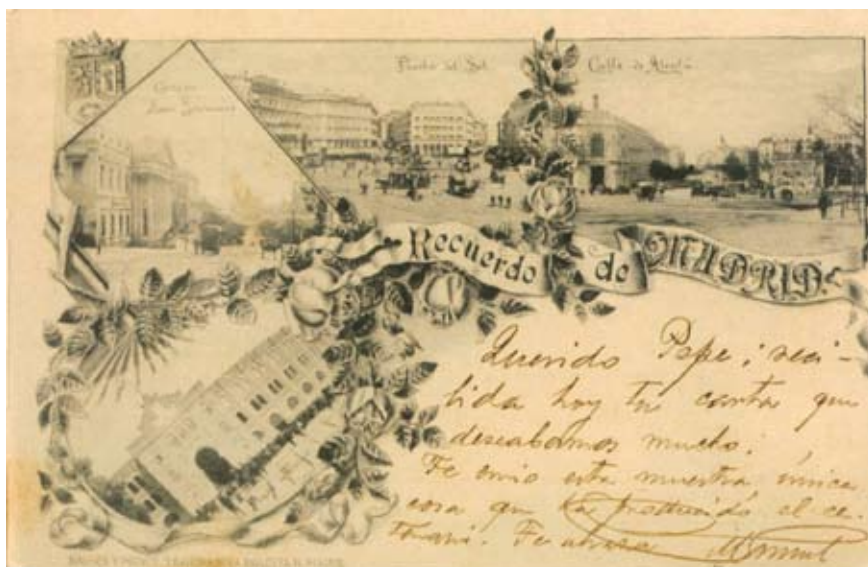 Puerta del Sol.
Calle de Alcalá.
Recuerdo de MADRID.
Querido Pepe; reci-
bida hoy tu carta que
deseabamos mucho.
Te envio esta muestra única
cosa que ha producido el ce-
Te abraza Manuel